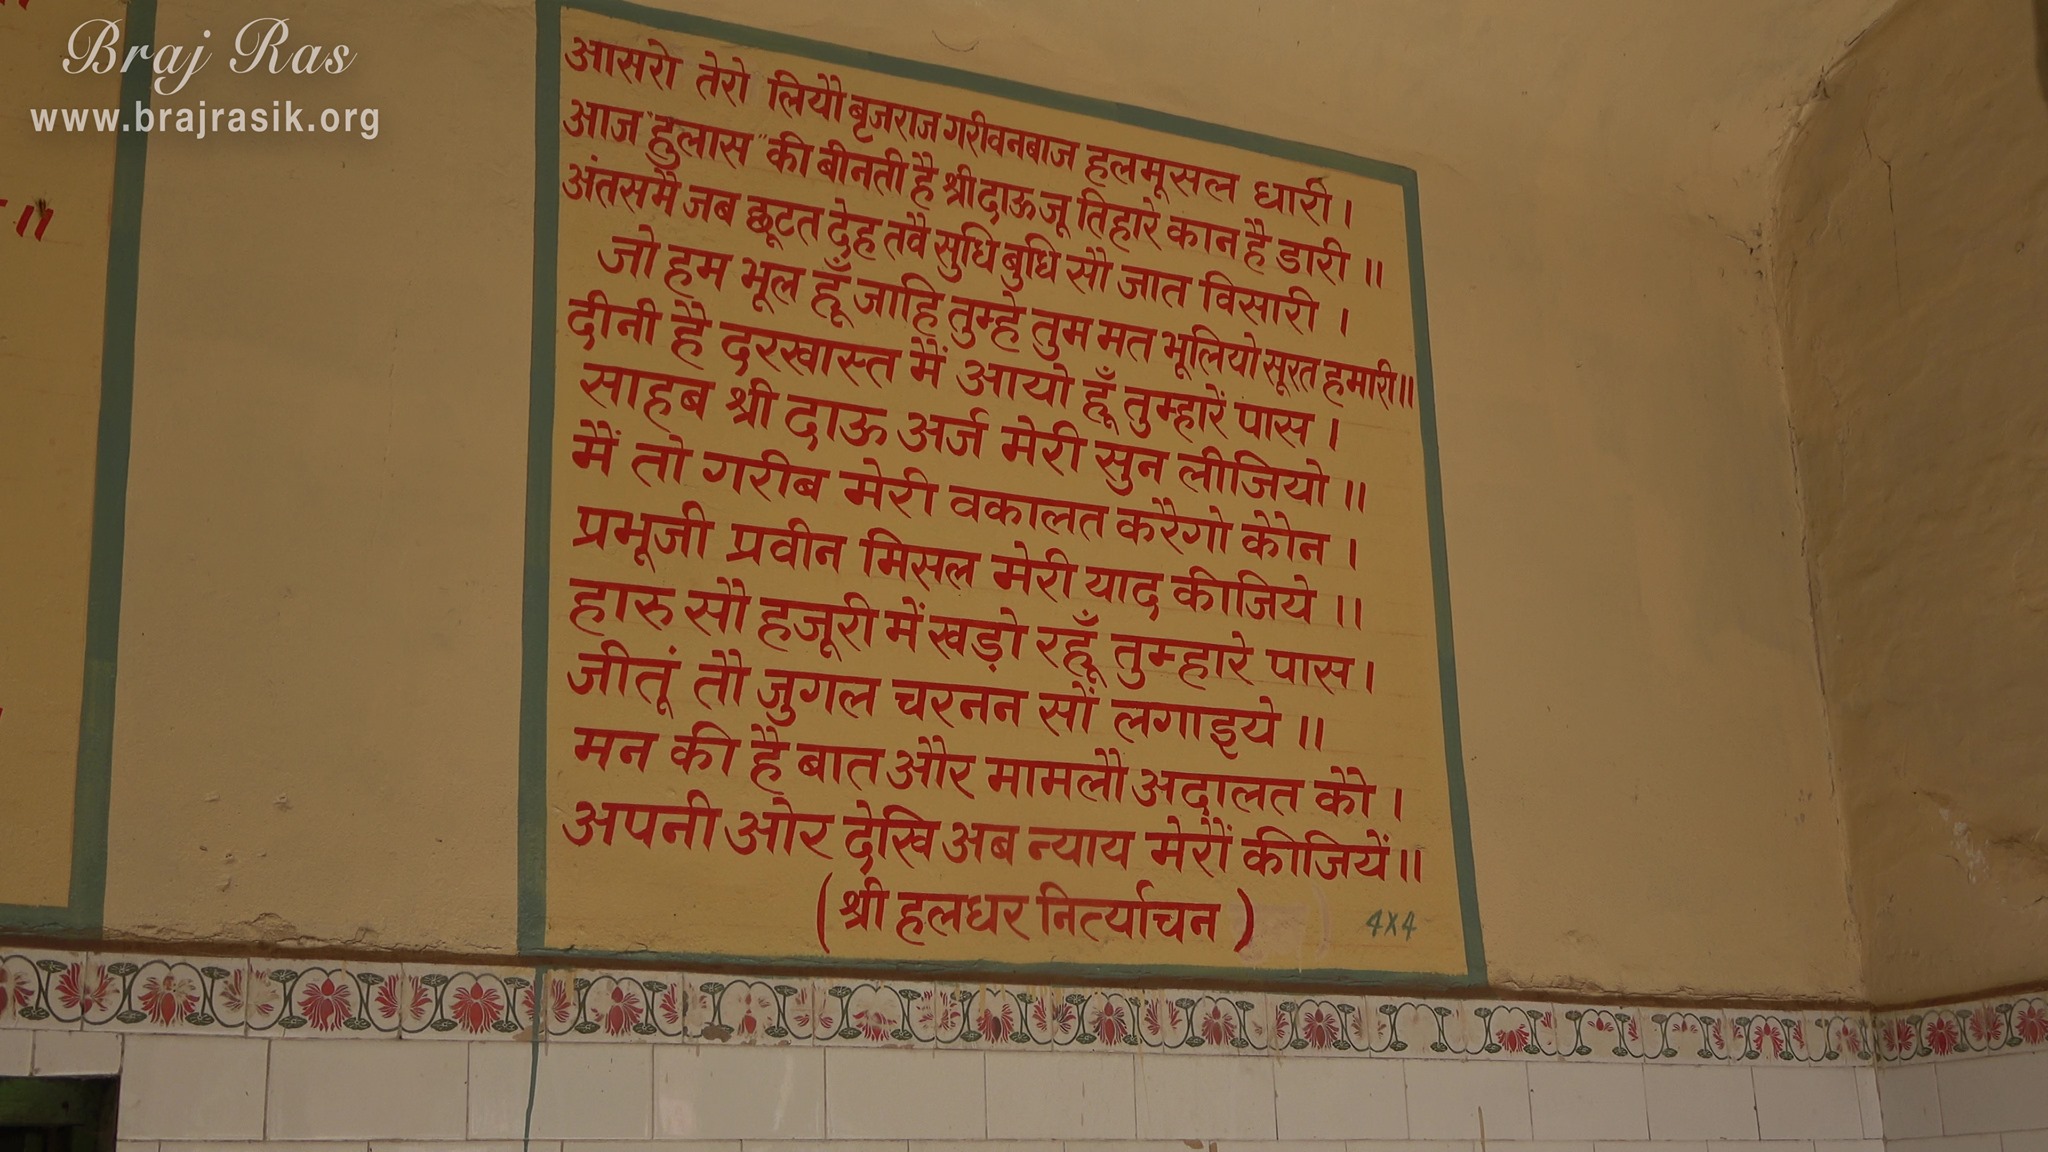 Braj Ras
www.brajrasik.org
॥
आसरो तेरो लियौ बृजराज गरीवनबाज हलमूसल धारी।
आज "हुलास" की बीनती है श्रीदाऊजू तिहारे कान है डारी ॥
अंतसमैं जब छूटत देह तवै सुधि बुधि सौ जात विसारी ।
जो हम भूल हूँ जाहि तुम्हे तुम मत भूलियो सूरत हमारी॥
दीनी है दरखास्त मैं आयो हूँ तुम्हारें पास ।
साहब श्री दाऊ अर्ज मेरी सुन लीजियो ॥
मैं तो गरीब मेरी वकालत करैगो कौन ।
प्रभूजी प्रवीन मिसल मेरी याद कीजिये ॥
हारु सौ हजूरी में खड़ो रहूँ तुम्हारे पास।
जीतूं तौ जुगल चरनन सों लगाइये ॥
मन की है बात और मामलौ अदालत कौ ।
अपनी ओर देखि अब न्याय मेरौं कीजियें॥
(श्री हलधर निर्त्याचन)
4x4